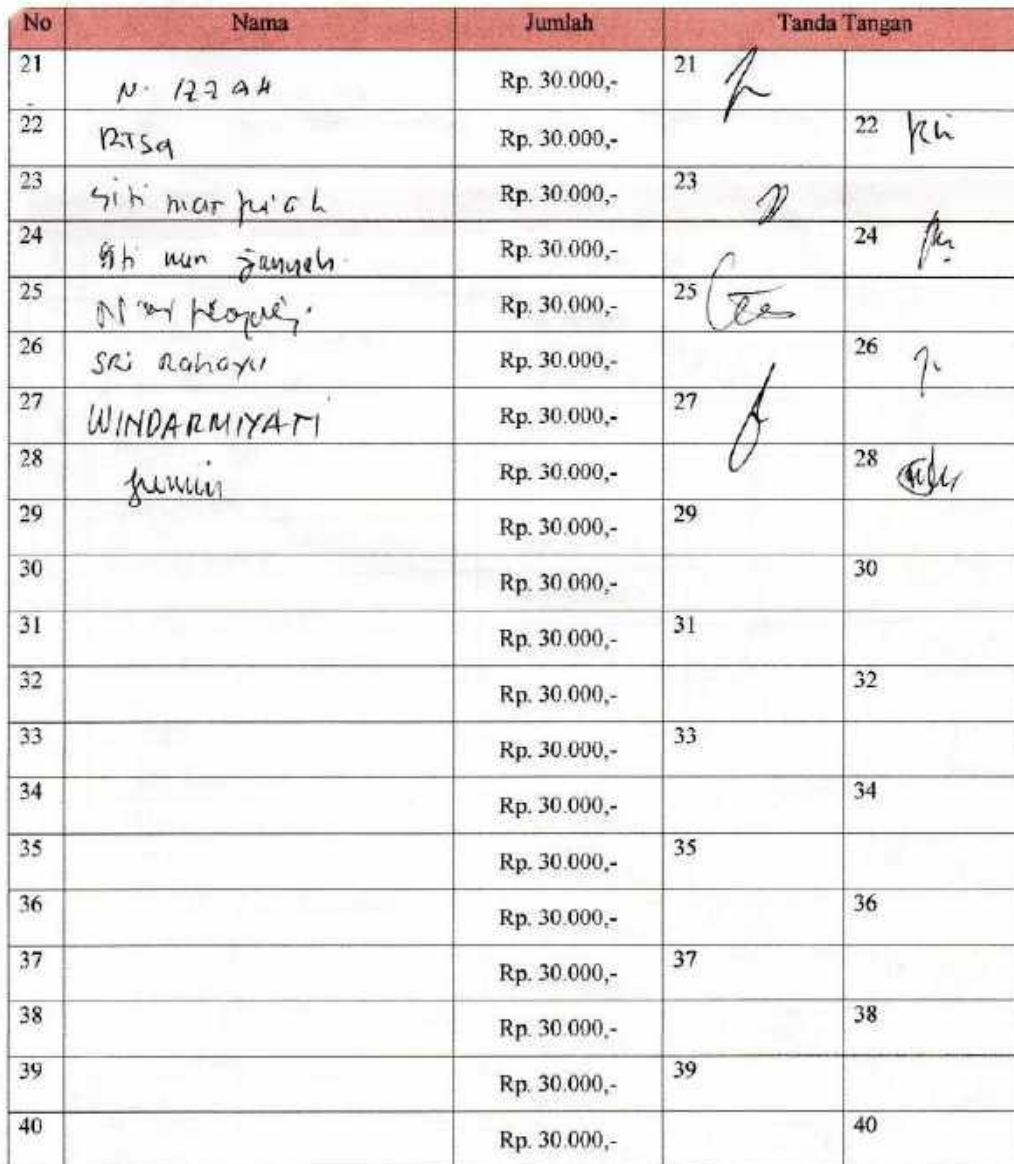 No Nama Jumlah Tanda Tangan
21 N. IZZAH Rp. 30.000,- 21
22 RISA Rp. 30.000,- 22
23 Siti mar Rp. 30.000,- 23
24 Siti nur Rp. 30.000,- 24
25 Rp. 30.000,- 25
26 SRi Rahayu Rp. 30.000,- 26
27 WINDARMIYATI Rp. 30.000,- 27
28 Rp. 30.000,- 28
29 Rp. 30.000,- 29
30 Rp. 30.000,- 30
31 Rp. 30.000,- 31
32 Rp. 30.000,- 32
33 Rp. 30.000,- 33
34 Rp. 30.000,- 34
35 Rp. 30.000,- 35
36 Rp. 30.000,- 36
37 Rp. 30.000,- 37
38 Rp. 30.000,- 38
39 Rp. 30.000,- 39
40 Rp. 30.000,- 40